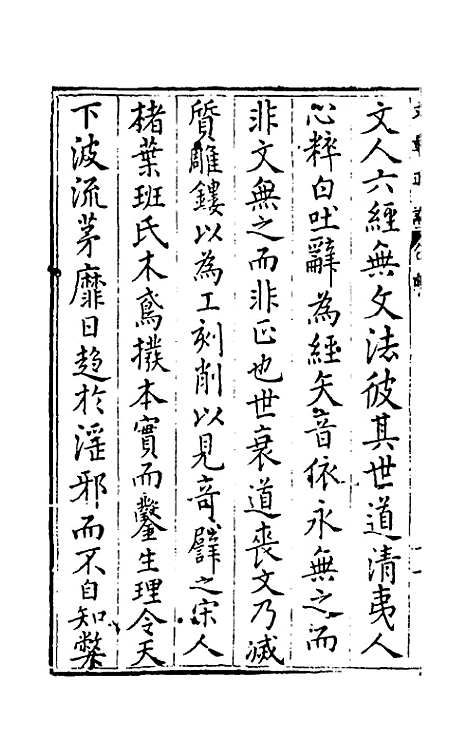 文人六經無文法彼其世道清夷人
心粹白吐辭為經矢音依永無之而
非文無之而非正也世衰道喪文乃滅
質雕鏤以為工刻削以見奇譬之宋人
楮葉班氏木鳶撥本實而鑿生理令天
下波流茅靡日趋於淫邪而不自知弊